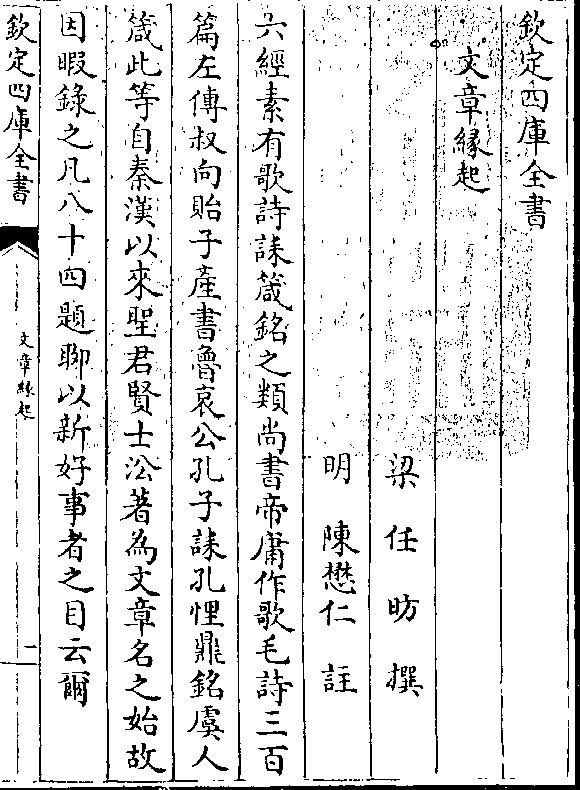 欽定四庫全書
文章緣起
梁任昉撰
明陳懋仁註
六經素有歌詩誄箴銘之類尚書帝庸作歌毛詩三百
篇左傳叔向貽子產書魯哀公孔子誄孔悝鼎銘虞人
箴此等自秦漢以來聖君賢士沿著為文章名之始故
因暇錄之凡八十四題聊以新好事者之目云爾
欽定四庫全書
文章緣起
一